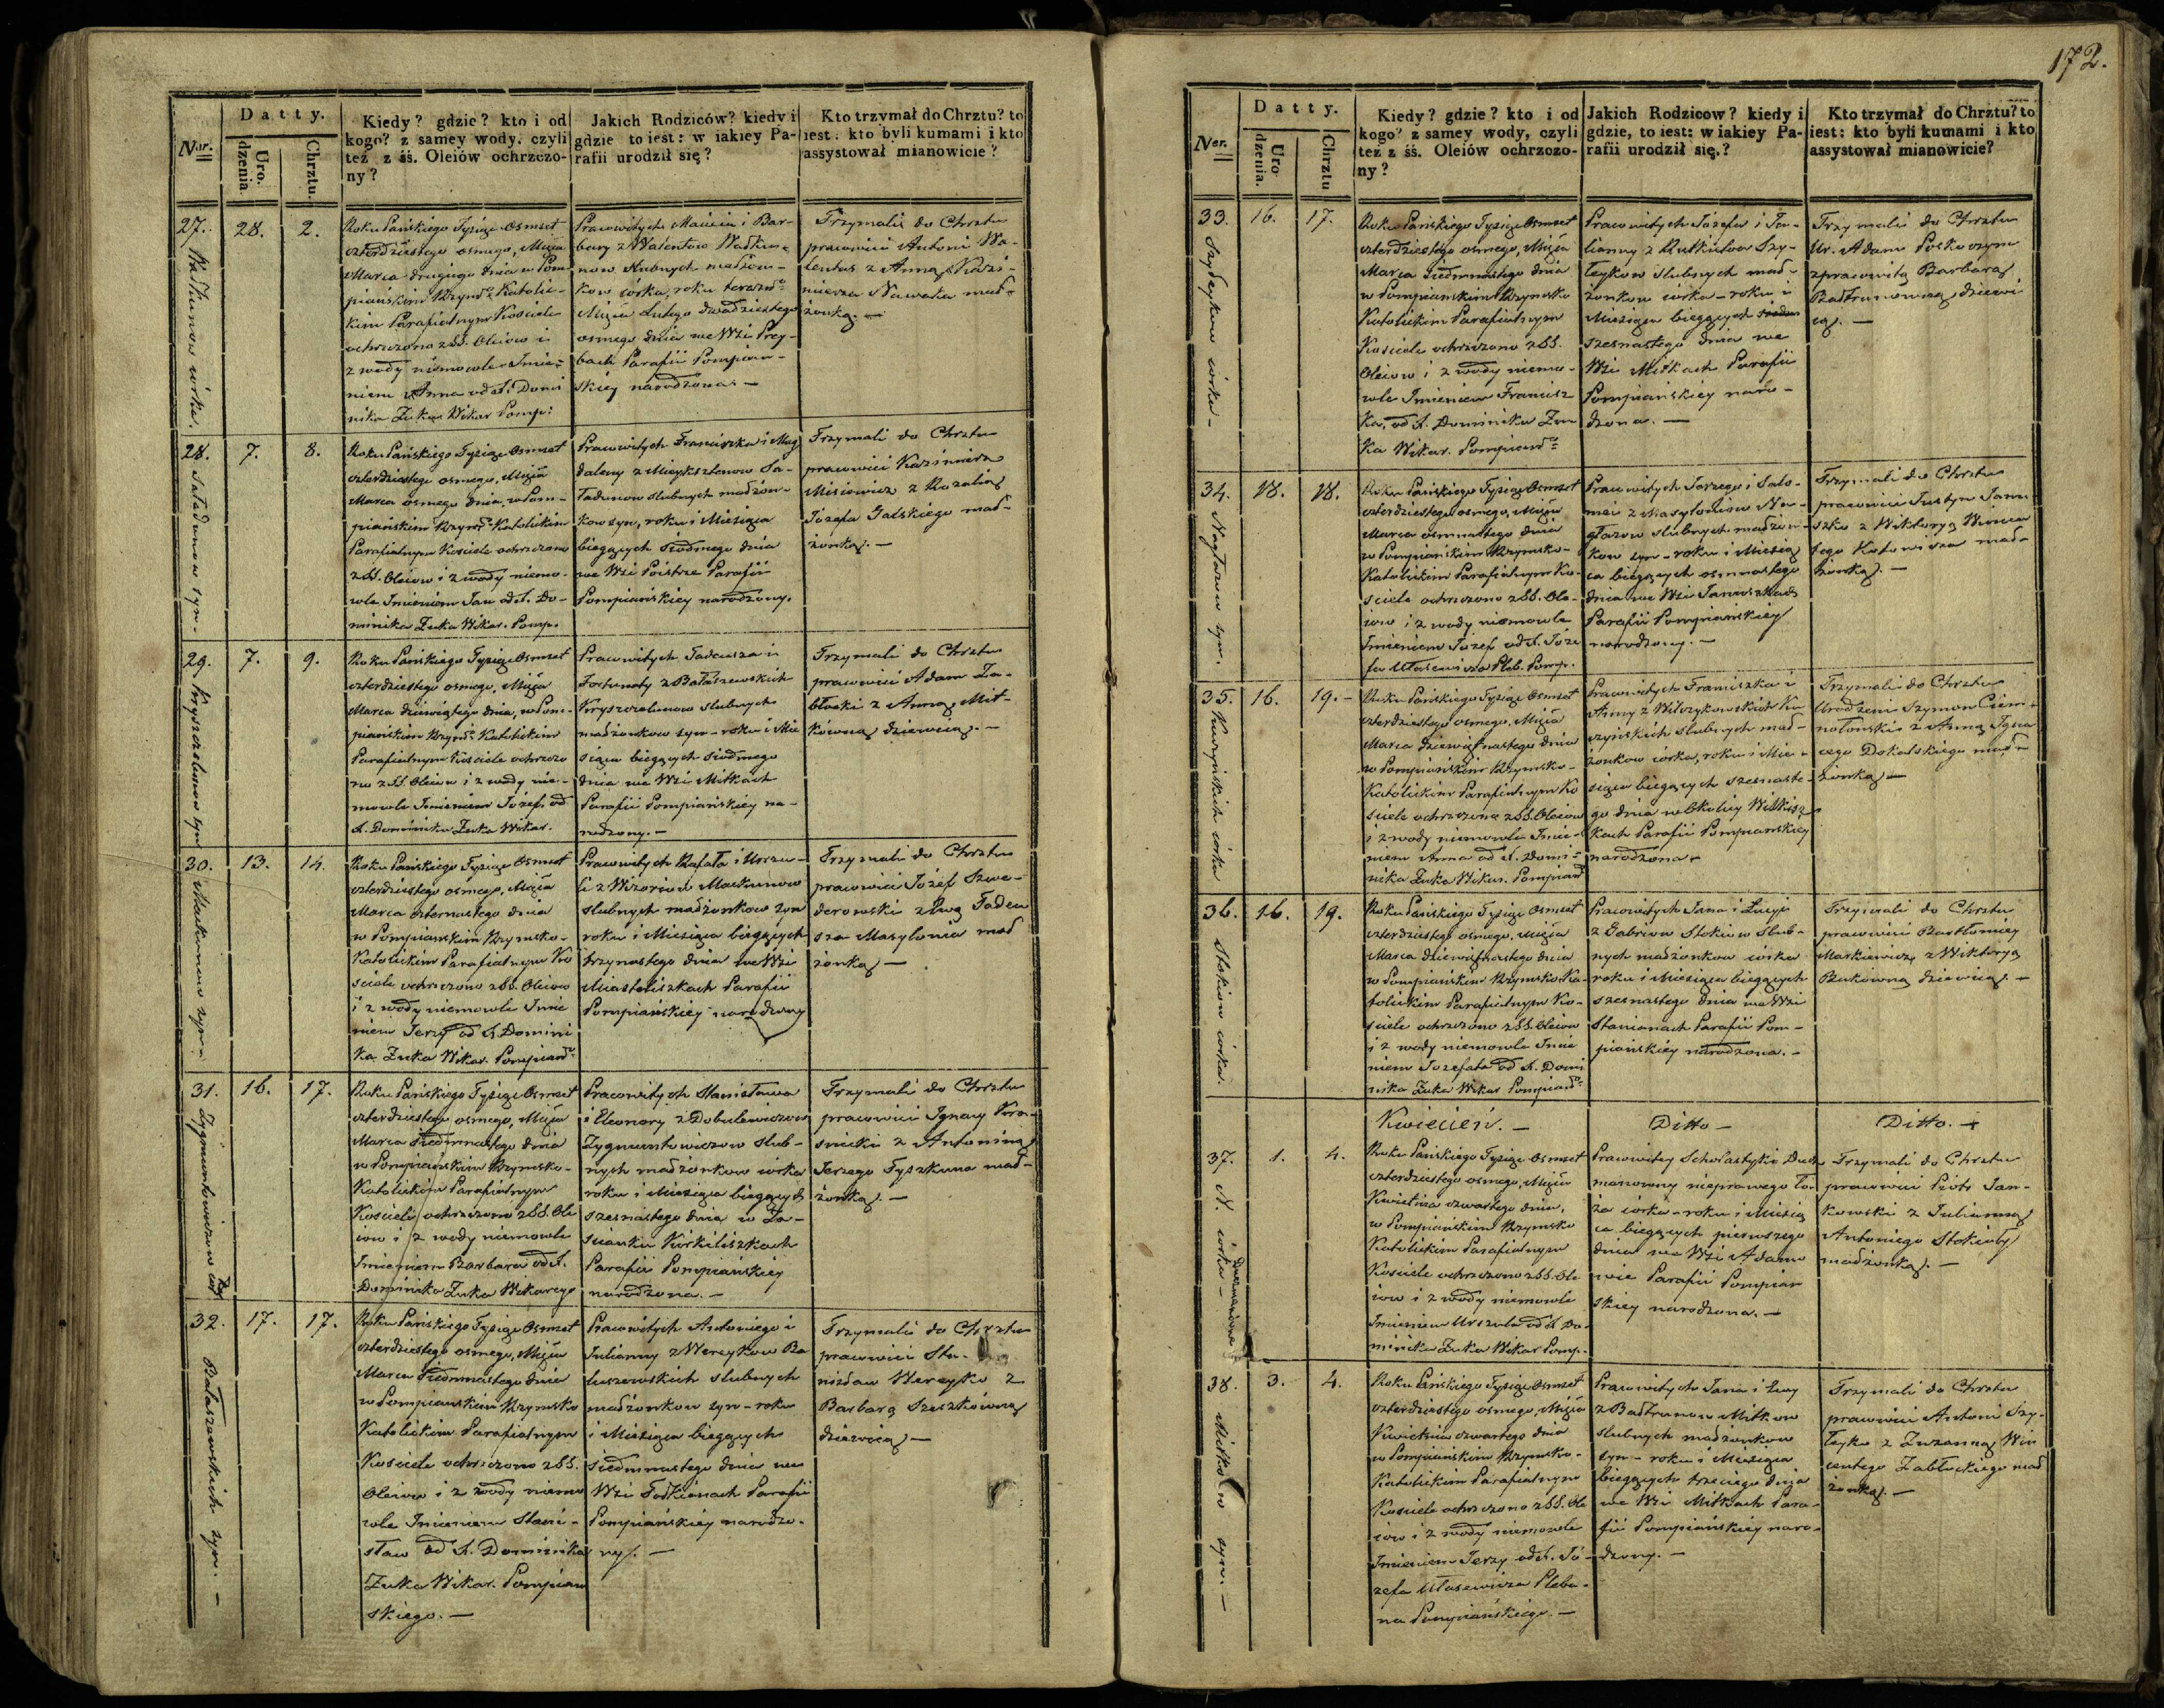 172.
Ner.
Datty.
Urodzenia.
Chrztu.
Kiedy? gdzie? kto i od
kogo? z samey wody, czyli
też z śś. Oleiów ochrzczo-
ny?
Jakich Rodziców? kiedy i
gdzie to iest: w iakiey Pa-
rafii urodził się?
Kto trzymał do Chrztu? to
iest: kto byli kumami i kto
assystował mianowicie?
27.
28.
2.
Roku Pańskiego Tysiąc Osmset
czterdziestego osmego, Msca
Marca drugiego dnia w Pom
piańskim Rzym. Katolic-
kim Parafialnym Kościele
ochrzczono z SS. Oleiow i
z wody niemowle Imie-
niem Anna od X. Domi
nika Żuka Wikar. Pomp:
Pracowitych Macieia i Bar-
bary z Walentow
now slubnych małżon-
kow córka, roku
Msca Lutego dwadziestego
osmego dnia we Wsi Prey-
bach Parafii Pompian-
skiey narodzona. —
Trzymali do Chrztu
pracowici Antoni Wa-
lentus z Anną Kazi-
mierza Nawaka mał-
żonką. —
28.
7.
8.
Roku Pańskiego Tysiąc Osmset
czterdziestego osmego, Msca
Marca osmego dnia, w Pom-
piańskim Rzym. Katolickim
Parafialnym Kościele ochrzczono
z SS. Oleiow i z wody niemo-
wle Imieniem Jan od X. Do-
minika Żuka Wikar. Pomp.
Pracowitych Franciszka i Mag
daleny z Mieyksztenow Sa-
ładunow slubnych małżon-
kow syn, roku i Miesiąca
bieżących siodmego dnia
we Wsi Poistrze Parafii
Pompiańskiey narodzony.
Trzymali do Chrztu
pracowici Kazimierz
Misiewicz z Rozalią
Józefa Galskiego mał-
żonką. —
29. Kryszczelunow syn
7.
9.
Roku Pańskiego Tysiąc Osmset
czterdziestego osmego, Msca
Marca dziewiątego dnia, w Pom-
piańskim Rzym. Katolickim
Parafialnym Kościele ochrzczo
no z SS. Oleiow i z wody nie-
mowle Imieniem Józef, od
X. Dominika Żuka Wikar.
Pracowitych Tadeusza i
Fortunaty z Bałaszewskich
Kryszczelunow slubnych
małżonkow syn - roku i Mie
siąca bieżących siodmego
dnia we Wsi Mitkach
Parafii Pompiańskiey na-
rodzony. —
Trzymali do Chrztu
pracowici Adam Za-
błocki z Anną Mit-
kówną dziewicą. —
30. Mackunow syn
13.
14.
Roku Pańskiego Tysiąc Osmset
czterdziestego osmego, Msca
Marca czternastego dnia
w Pompiańskim Rzymsko-
Katolickim Parafialnym Ko
ściele ochrzczono z SS. Oleiow
i z wody niemowle Imie
niem Jerzy od X. Domini
ka Żuka Wikar. Pompian.
Pracowitych Rafała i Urszu-
li z Wizoriow Mackunow
slubnych małżonkow syn
roku i Miesiąca bieżących
trzynastego dnia we Wsi
Miasteliszkach Parafii
Pompiańskiey narodzony
Trzymali do Chrztu
pracowici Józef Szwe-
derowski z Ewą Tadeu
sza Masylonia mał
żonką —
31. Zygmuntowiczow corka
16.
17.
Roku Pańskiego Tysiąc Osmset
czterdziestego osmego, Msca
Marca siedmnastego dnia
w Pompiańskim Rzymsko-
Katolickim Parafialnym
Kościele ochrzczono z SS. Ole
iow i z wody niemowle
Imieniem Barbara od X.
Dominika Żuka Wikarego
Pracowitych Stanisława
i Eleonory z Dobulewiczow
Zygmuntowiczow slub-
nych małżonkow corka
roku i Miesiąca bieżących
szesnastego dnia w Za-
scianku Kirkiliszkach
Parafii Pompiańskiey
narodzona. —
Trzymali do Chrztu
pracowici Ignacy Kra-
snicki z Antoniną
Jerzego Tyszkuna mał-
żonką. —
32. Bałaszewskich syn. —
17.
17.
Roku Pańskiego Tysiąc Osmset
czterdziestego osmego, Msca
Marca siedmnastego dnia
w Pompiańskim Rzymsko
Katolickim Parafialnym
Kościele ochrzczono z SS.
Oleiow i z wody niemo
wle Imieniem Stani-
sław od X. Dominika
Żuka Wikar. Pompian
skiego. —
Pracowitych Antoniego i
Julianny z Wereykow Ba
łaszewskich slubnych
małżonkow syn - roku
i Miesiąca bieżących
siedmnastego dnia we
Wsi Parafii
Pompiańskiey narodzo-
ny. —
Trzymali do Chrztu
pracowici Sta-
nisław Wereyko z
Barbarą Szeszkówną
dziewicą —
Ner.
Datty.
Urodzenia.
Chrztu
Kiedy? gdzie? kto i od
kogo? z samey wody, czyli
tez z śś. Oleiów ochrzczo-
ny?
Jakich Rodzicow? kiedy i
gdzie, to iest: w iakiey Pa-
rafii urodził się.?
Kto trzymał do Chrztu? to
iest: kto byli kumami i kto
assystował mianowicie?
33. Szyłeykow corka -
16.
17.
Roku Pańskiego Tysiąc Osmset
czterdziestego osmego, Msca
Marca siedmnastego dnia
w Pompiańskim Rzymsko
Katolickim Parafialnym
Kościele ochrzczono z SS.
Oleiow i z wody niemo-
wle Imieniem Francisz
ka, od X. Dominika Żu
ka Wikar. Pompian.
Pracowitych Józefa i Ju-
lianny z Rutkułow Szy-
łeykow slubnych mał-
żonkow corka - roku i
Miesiąca bieżących
szesnastego dnia we
Wsi Mitkach Parafii
Pompiańskiey naro-
dzona. —
Trzymali do Chrztu
Ur. Adam
z pracowitą Barbarą
Bałtrunowną dziewi
cą. —
34. Nagłazow syn.
18.
18.
Roku Pańskiego Tysiąc Osmset
czterdziestego osmego, Msca
Marca osmnastego dnia
w Pompiańskim Rzymsko-
Katolickim Parafialnym Ko-
ściele ochrzczono z SS. Ole-
iow i z wody niemowle
Imieniem Józef od X. Józe
fa Ułasewicza Pleb. Pomp.
Pracowitych Jerzego i Salo-
mei z Masyloniow Na-
głazow slubnych małżon-
kow syn - roku i Miesią
ca bieżących osmnastego
dnia we Wsi Januszkach
Parafii Pompiańskiey
narodzony. —
Trzymali do Chrztu
pracowici Justyn Janu
szko z Wiktoryą Wincen
tego Katowicza mał-
żonką. —
35. Kuczyńskich córka
16.
19.-
Roku Pańskiego Tysiąc Osmset
czterdziestego osmego, Msca
Marca dziewiętnastego dnia
w Pompiańskim Rzymsko-
Katolickim Parafialnym Ko
ściele ochrzczono z SS. Oleiow
i z wody niemowle Imie-
niem Anna od X. Domi-
nika Żuka Wikar. Pompian
Pracowitych Franciszka i
Anny z Wilczykowskich Ku
czyńskich slubnych mał-
żonkow córka, roku i Mie-
siąca bieżących szesnaste-
go dnia w Okolicy Witkisz
kach Parafii Pompianskiey
narodzona -
Trzymali do Chrztu
Urodzeni Szymon Ciem-
nołoński z Anną Igna
cego Dokalskiego mał-
żonką —
36. Stokiow córka.
16.
19.
Roku Pańskiego Tysiąc Osmset
czterdziestego osmego, Msca
Marca dziewiętnastego dnia
w Pompiańskim Rzymsko Ka-
tolickim Parafialnym Ko-
ściele ochrzczono z SS. Oleiow
i z wody niemowle Imie
niem Jozefata od X. Domi
nika Żuka Wikar Pompian.
Pracowitych Jana i Łucyi
z Gabriow Stokiow slub-
nych małżonkow córka
roku i Miesiąca bieżących
szesnastego dnia we Wsi
Stanionach Parafii Pom-
piańskiey narodzona. -
Trzymali do Chrztu
pracowici Bartłomiey
Markiewicz z Wiktoryą
Bukówną dziewicą. —
Kwiecień. —
Ditto —
Ditto. —
37. N. córka -
1.
4.
Roku Pańskiego Tysiąc Osmset
czterdziestego osmego, Msca
Kwietnia czwartego dnia,
w Pompiańskim Rzymsko
Katolickim Parafialnym
Kościele ochrzczono z SS. Ole
iow i z wody niemowle
Imieniem Urszula od X. Do-
minika Żuka Wikar Pomp.
Pracowitey Scholastyki
nieprawego ło-
ża córka - roku i Miesią
ca bieżących pierwszego
dnia we Wsi Adamo
wie Parafii Pompiań
skiey narodzona. —
Trzymali do Chrztu
pracowici Piotr Jan-
kowski z Julianną
Antoniego Stokiały
małżonką. —
38. Mitkow syn. —
3.
4.
Roku Pańskiego Tysiąc Osmset
czterdziestego osmego, Msca
Kwietnia czwartego dnia
w Pompiańskim Rzymsko-
Katolickim Parafialnym
Kościele ochrzczono z SS. Ole
iow i z wody niemowle
Imieniem Jerzy od X. Jó-
zefa Ułasewicza Pleba-
na Pompiańskiego. —
Pracowitych Jana i Ewy
z Bałtrunow Mitkow
slubnych małżonkow
syn - roku i Miesiąca
bieżących trzeciego dnia
we Wsi Mitkach Para-
fii Pompiańskiey naro-
dzony. —
Trzymali do Chrztu
pracowici Antoni Szy-
łeyko z Zuzanną Win
centego Zabłockiego mał
żonką. —